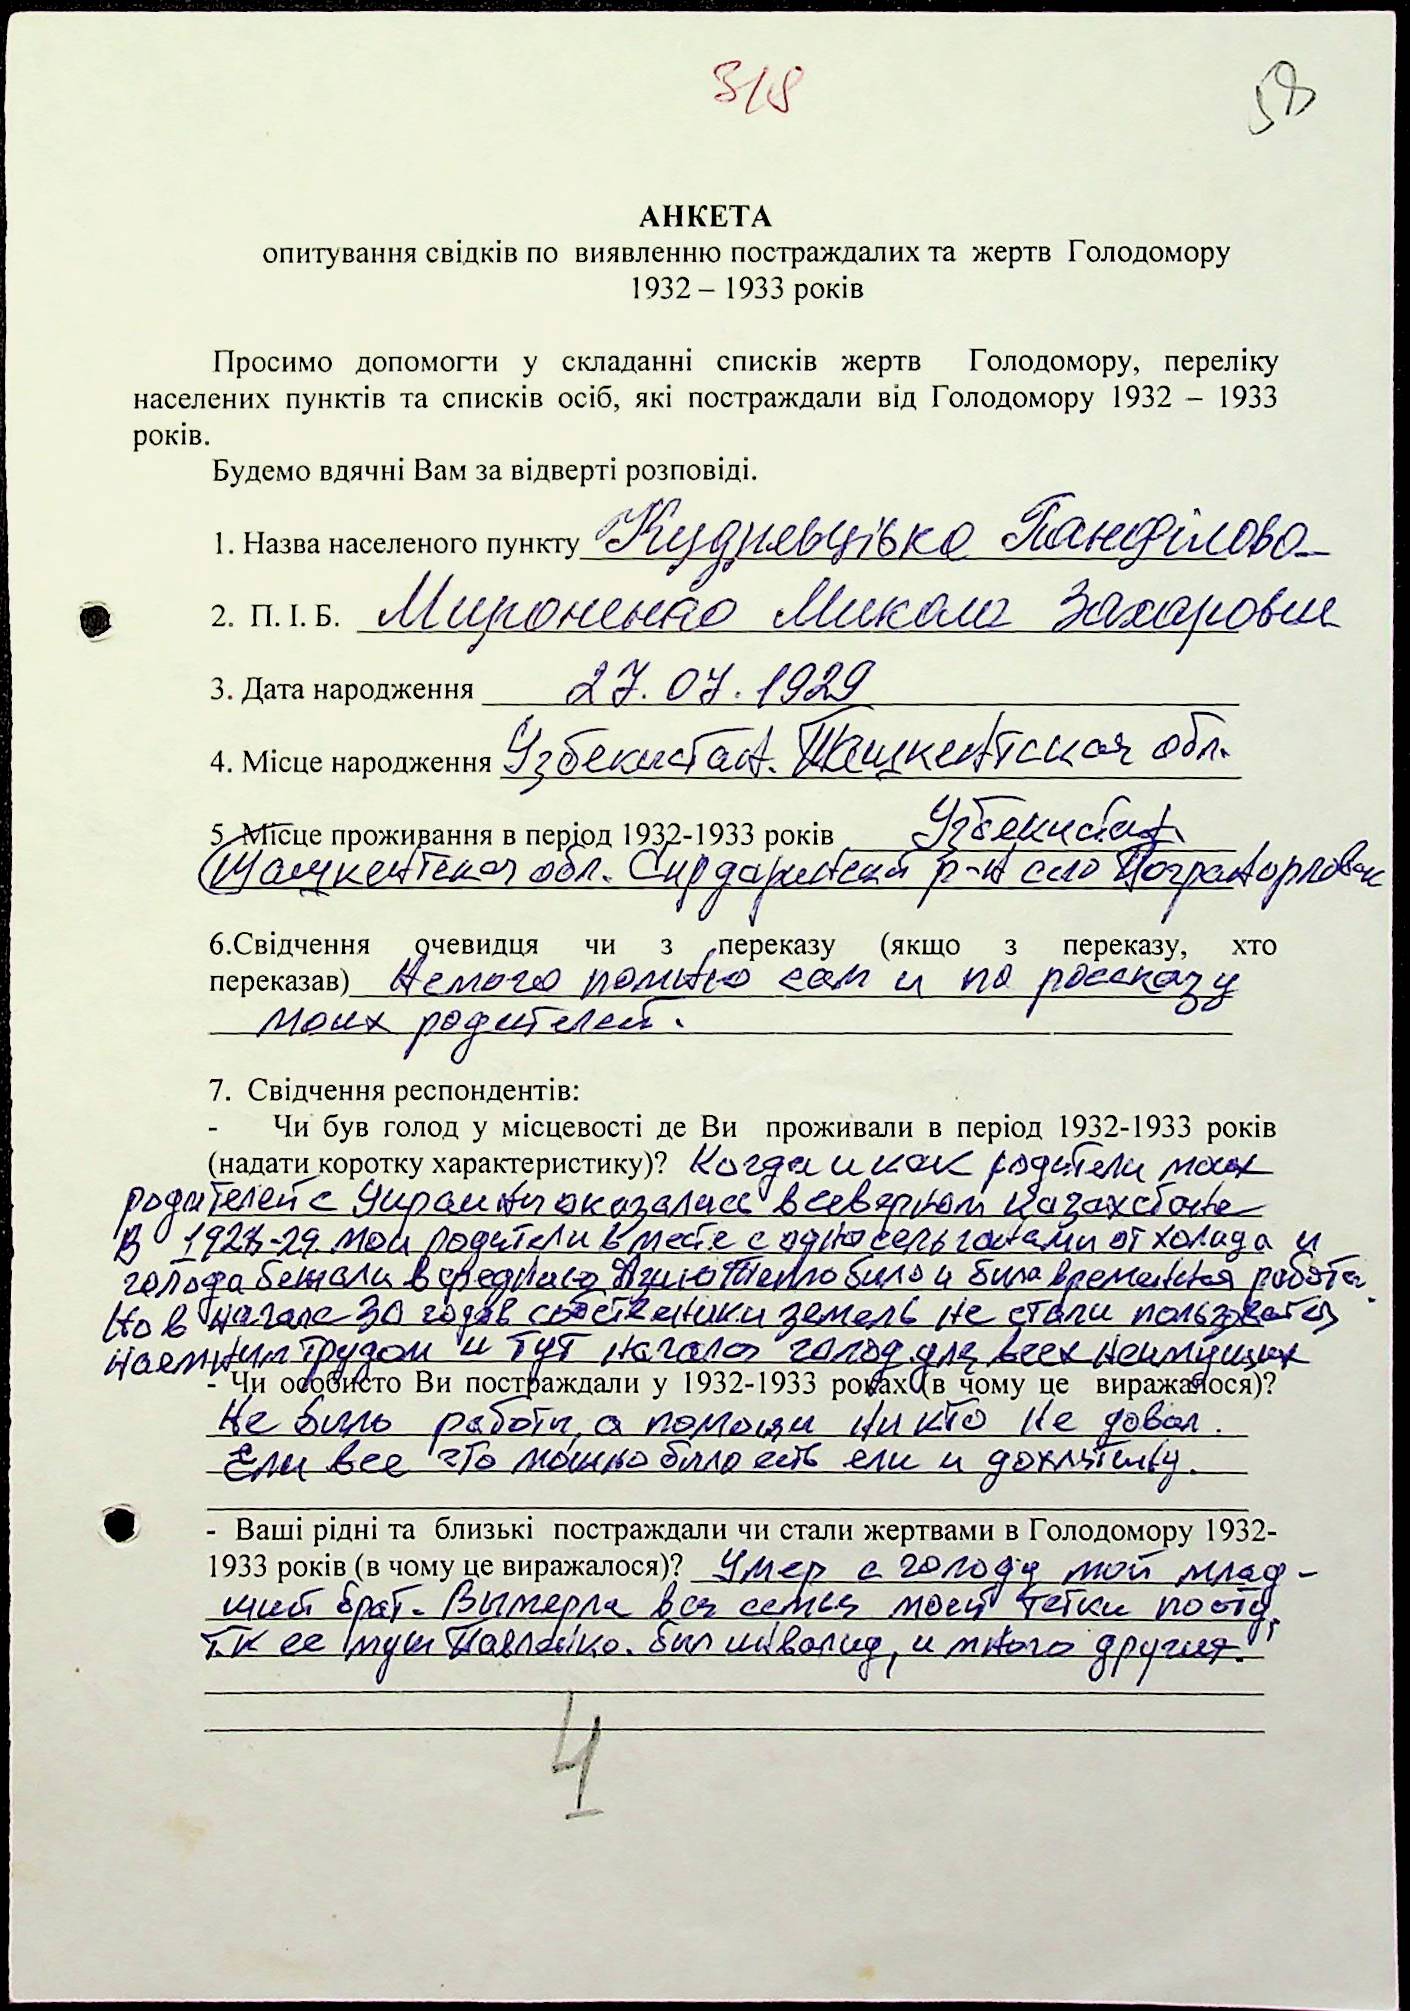 58
АНКЕТА
опитування свідків по виявленню постраждалих та жертв Голодомору
1932 – 1933 років
Просимо допомогти у складанні списків жертв Голодомору, переліку
населених пунктів та списків осіб, які постраждали від Голодомору 1932 – 1933
років.
Будемо вдячні Вам за відверті розповіді.
1. Назва населеного пункту Панфілово
2. П. І. Б. Мироненко Микола Захарович
3. Дата народження 27.07.1929
4. Місце народження Узбекистан. Ташкентская обл.
5. Місце проживання в період 1932-1933 років Узбекистан
Ташкентская обл. Сирдаринский р-н село
6.Свідчення очевидця чи з переказу (якщо з переказу, хто
переказав) Немого помню сам и по рассказу
моих родителей.
7. Свідчення респондентів:
- Чи був голод у місцевості де Ви проживали в період 1932-1933 років
(надати коротку характеристику)? Когда и как родители моих
родителей с Украины оказались в северном Казахстане
В 1928-29 мои родители вместе с односельчанами от холода и
голода бежали в среднюю Азию Тепло было и была временная работа.
Но в начале 30 годов собственики земель не стали пользоватся
наемным трудом и тут начался голод для всех неимущих
- Чи особисто Ви постраждали у 1932-1933 роках (в чому це виражалося)?
Не было работы, а помощи ни кто не довал.
Ели все что можно было есть ели и дохлятину.
- Ваші рідні та близькі постраждали чи стали жертвами в Голодомору 1932-
1933 років (в чому це виражалося)? Умер с голоду мой млад-
ший брат. Вымерла вся семья моей тетки
т.к ее муж Павленко. был инвалид, и много других.
4